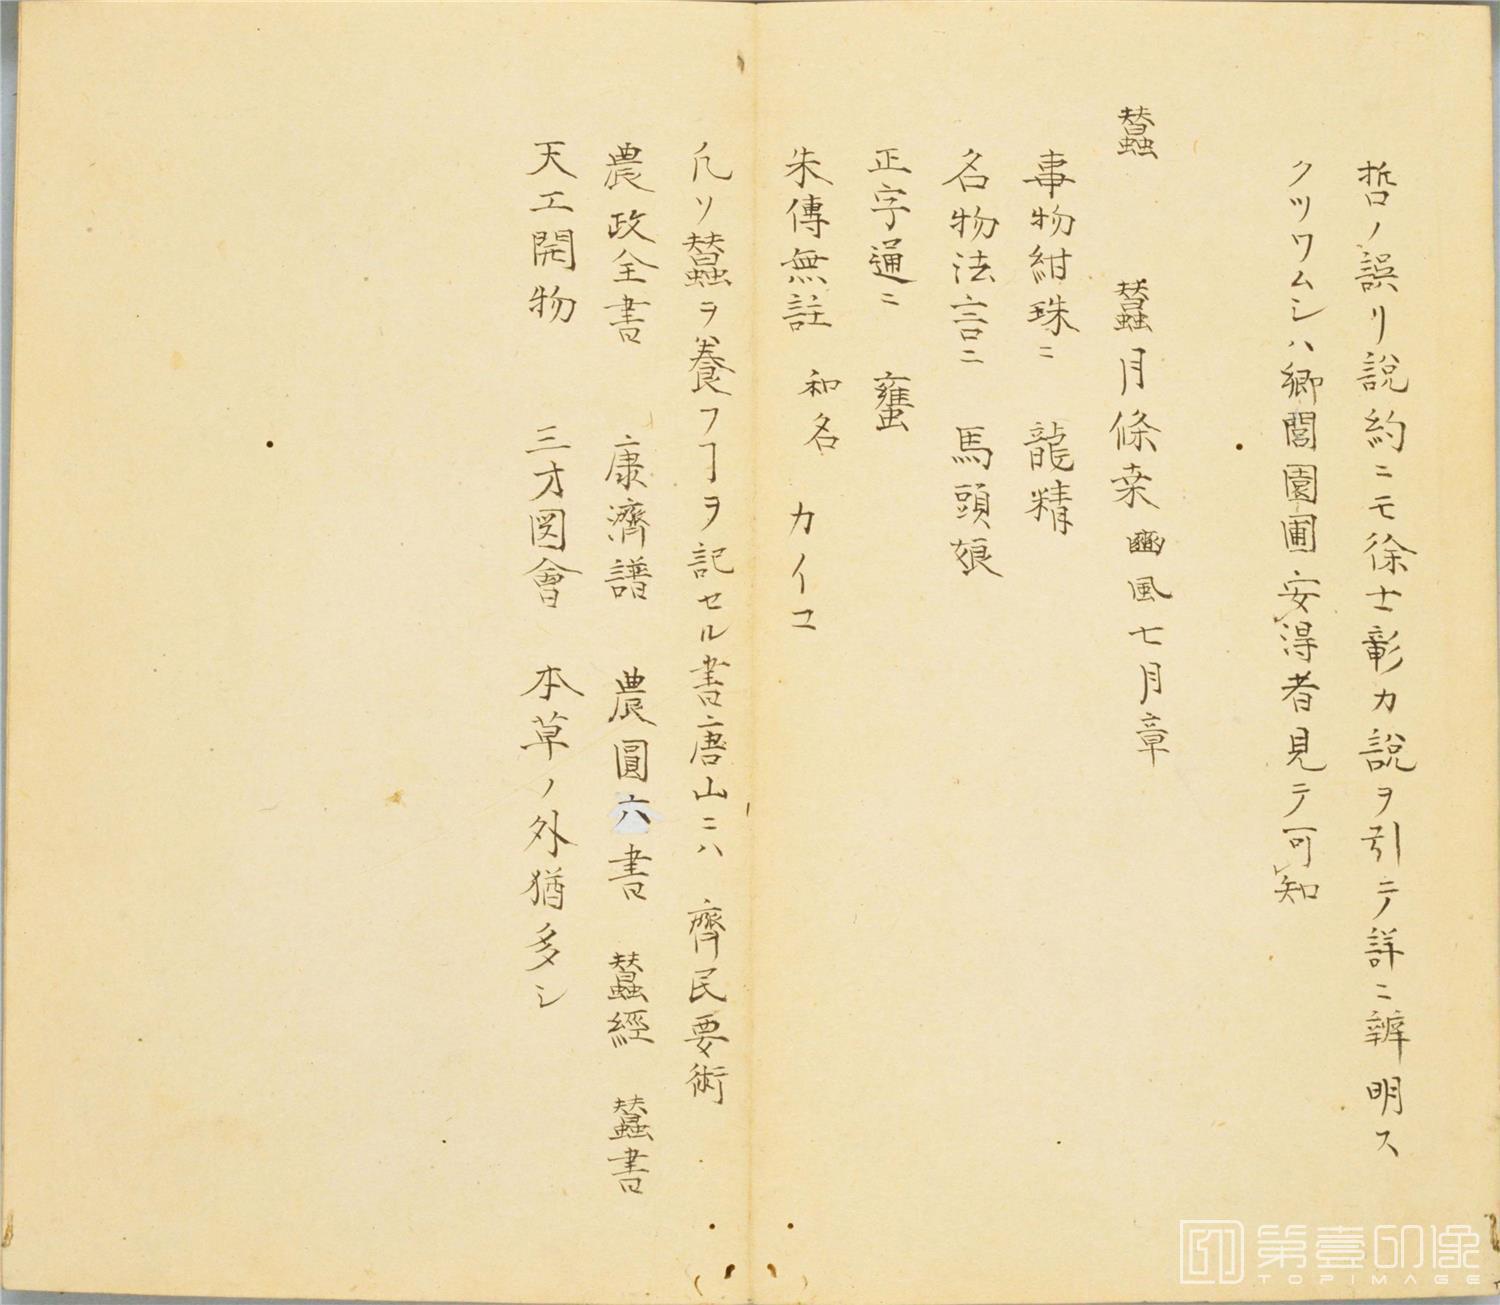 哲ノ誤リ説約ニモ徐士彰カ説ヲ引テノ詳ニ辨明ス
クツワムシハ郷閭園圃安得者見テ可知
蠶 蠶月條桒 豳風七月章
事物紺珠ニ 龍精
名物法言ニ 馬頭娘
正字通ニ
朱傳無註 和名 カイコ
凡ソ蠶ヲ養フヿヲ記セル書唐山ニハ 齊民要術
農政全書 康濟譜 農圓六書 蠶經 蠶書
天工開物 三才図會 本草ノ外猶多シ
第壹印像
TOPIMAGE